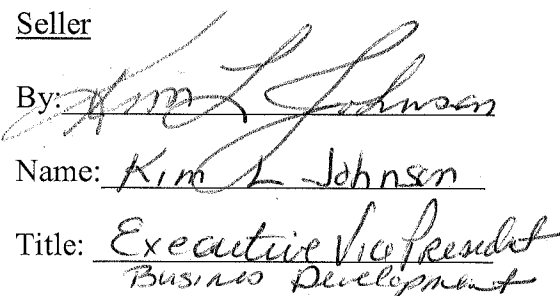 Seller
By: Kim L Johnson
Name: Kim L Johnson
Title: Executive Vice President
Business Development